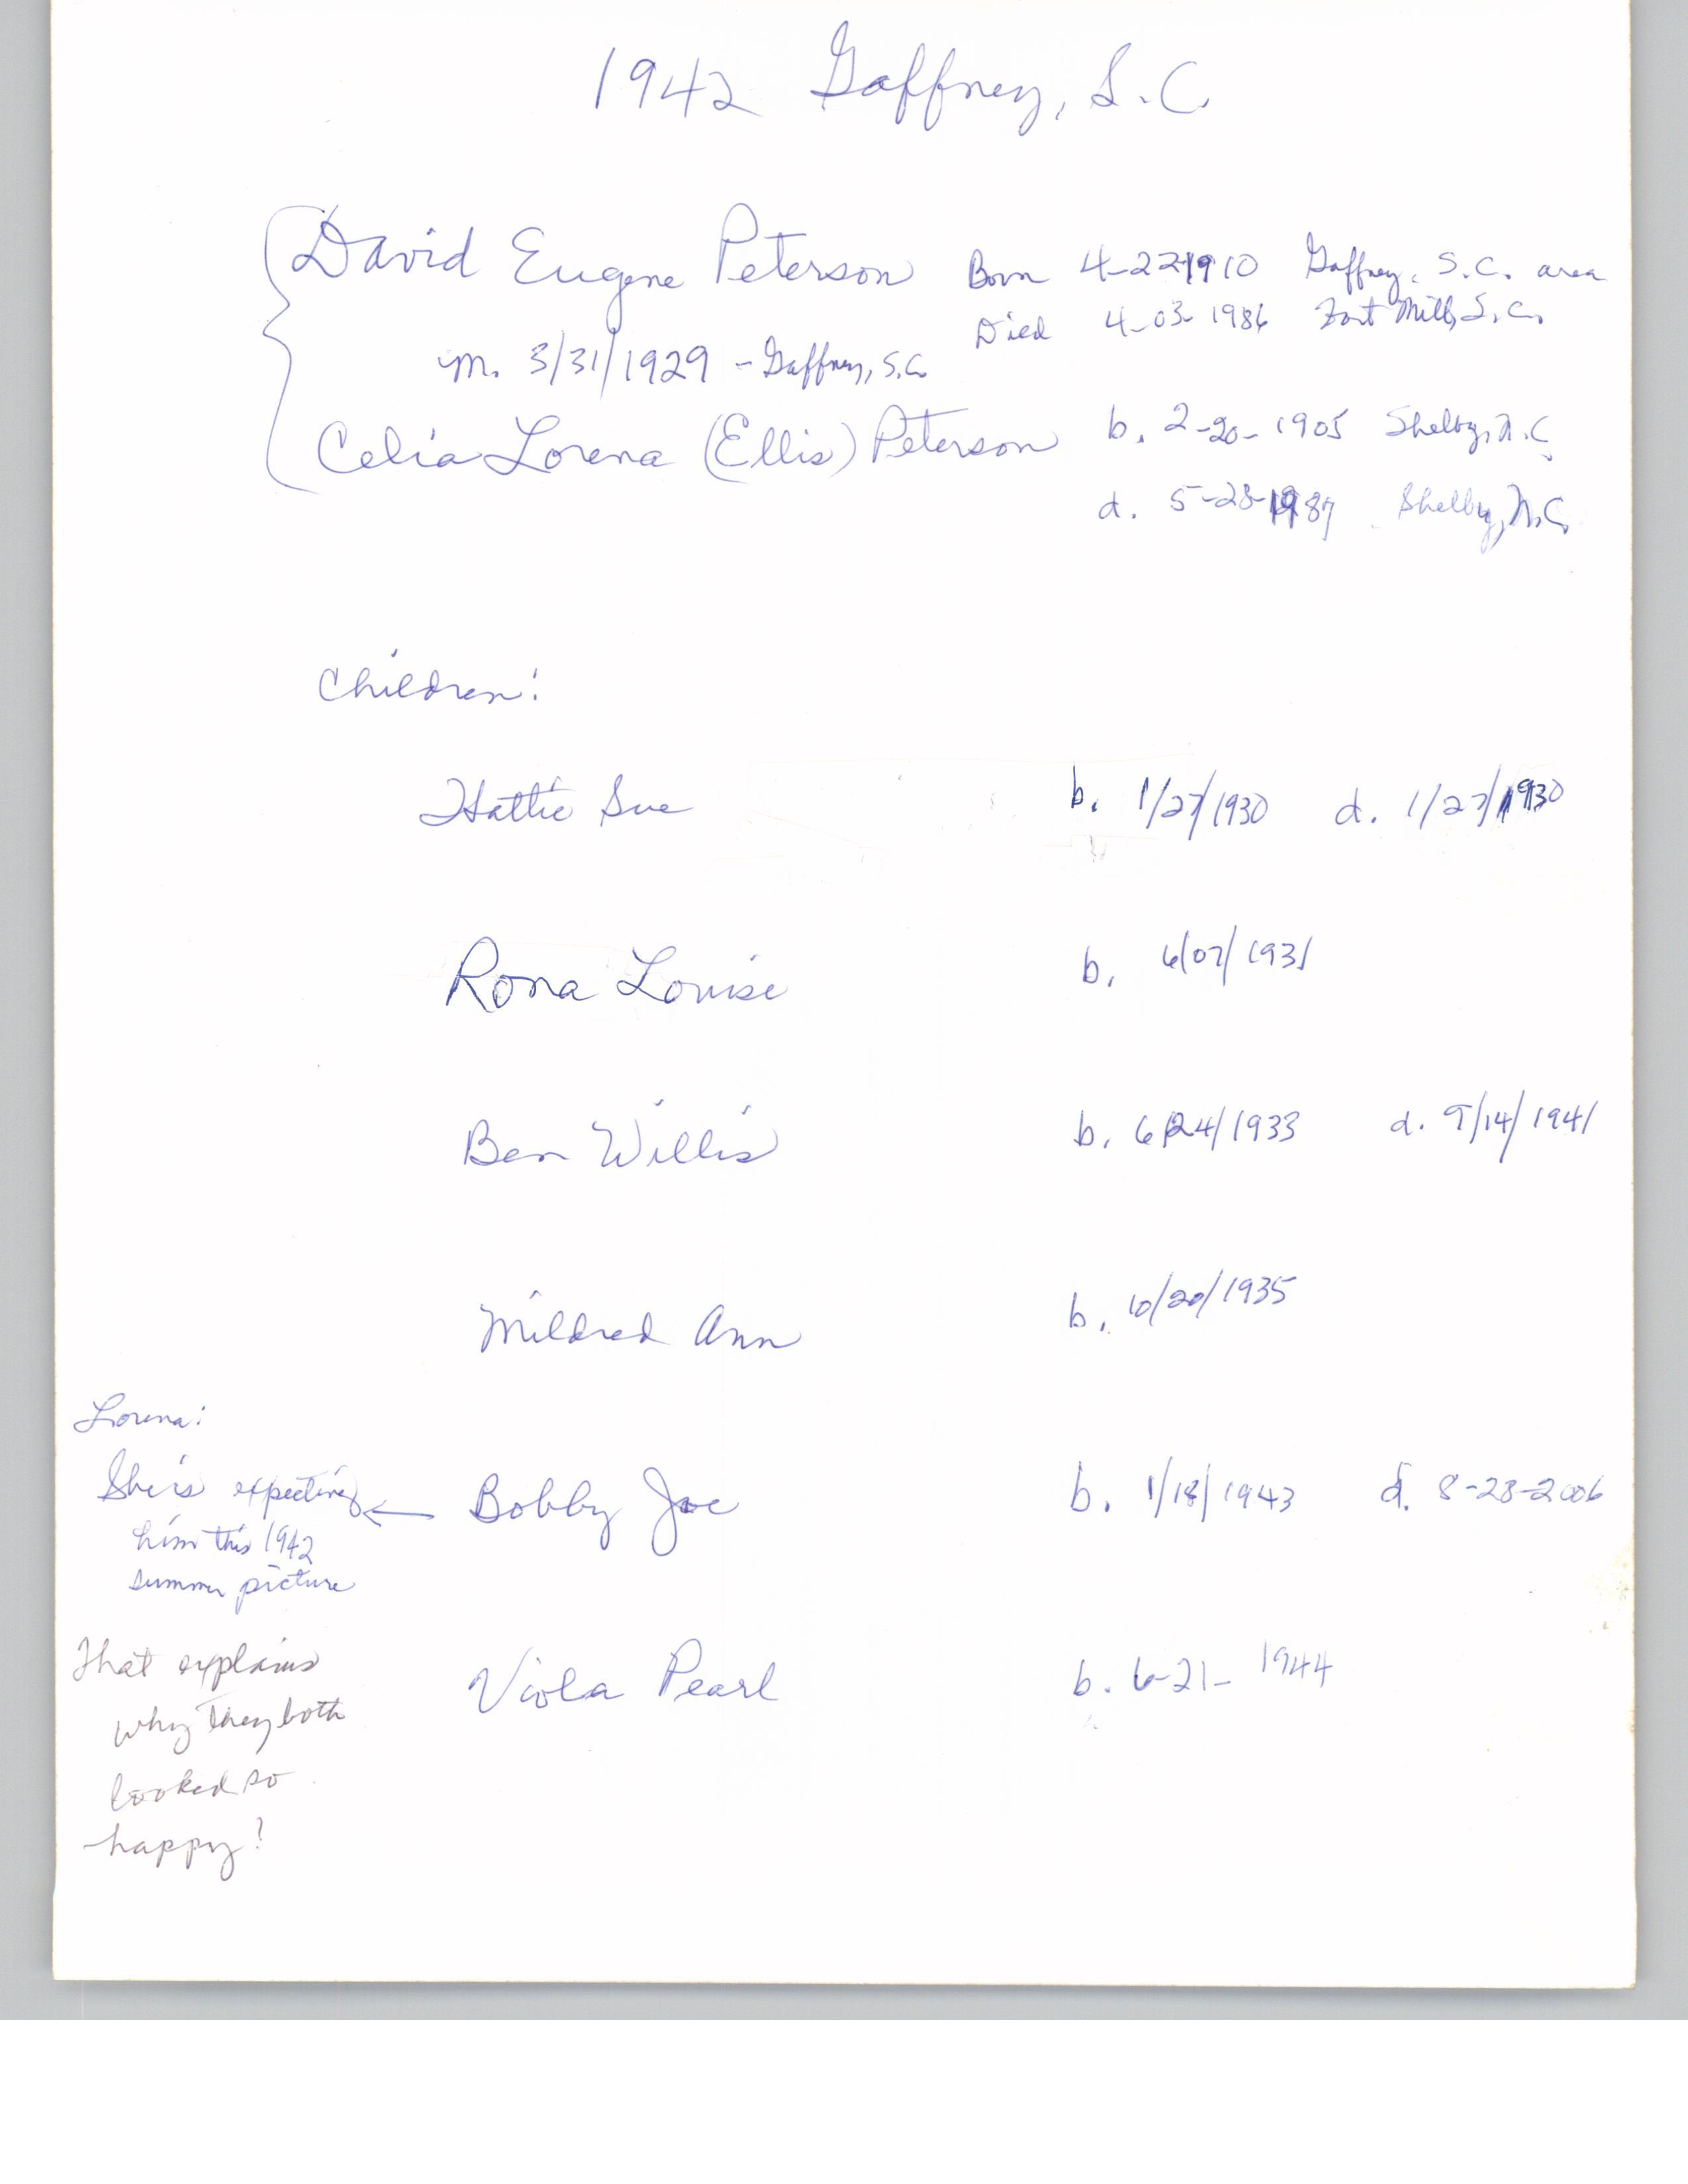 1942 Gaffney, S.C.
David Eugene Peterson Born 4-22-1910 Gaffney, S.C. area
Died 4-03-1986 Fort Mill, S.C.
m. 3/31/1929 - Gaffney, S.C.
Celia Lorena (Ellis) Peterson b. 2-20-1905 Shelby, N.C.
d. 5-28-1987 Shelby, N.C.
Children:
Hattie Sue b. 1/27/1930 d. 1/27/1930
Rona Louise b. 6/07/1931
Ben Willis b. 6/24/1933 d. 9/14/1941
Mildred Ann b. 10/20/1935
Lorena:
She's expecting ← Bobby Joe b. 1/18/1943 d. 8-28-2006
him this 1942
summer picture
That explains
why they both
looked so
happy!
Viola Pearl b. 6-21-1944